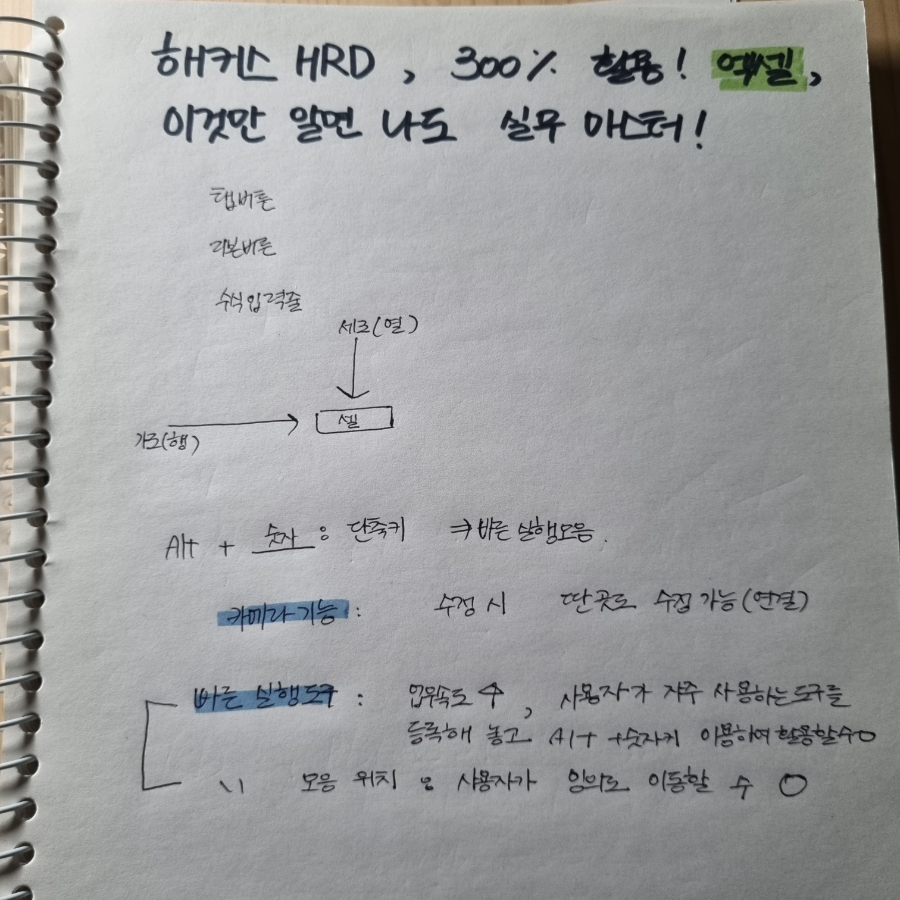 해커스 HRD, 300% 활용! 엑셀,
이것만 알면 나도 실무 마스터!
탭버튼
리본버튼
수식입력줄
세로(열)
셀
가로(행)
Alt + 숫자 : 단축키 ⇒ 빠른 실행모음.
카메라 기능 : 수정 시 딴곳도 수정 가능(연결)
빠른 실행도구 : 업무속도 ↑, 사용자가 자주 사용하는 도구를
등록해 놓고 Alt +숫자키 이용하여 활용할수O
\\ 모음 위치 : 사용자가 임의로 이동할 수 O